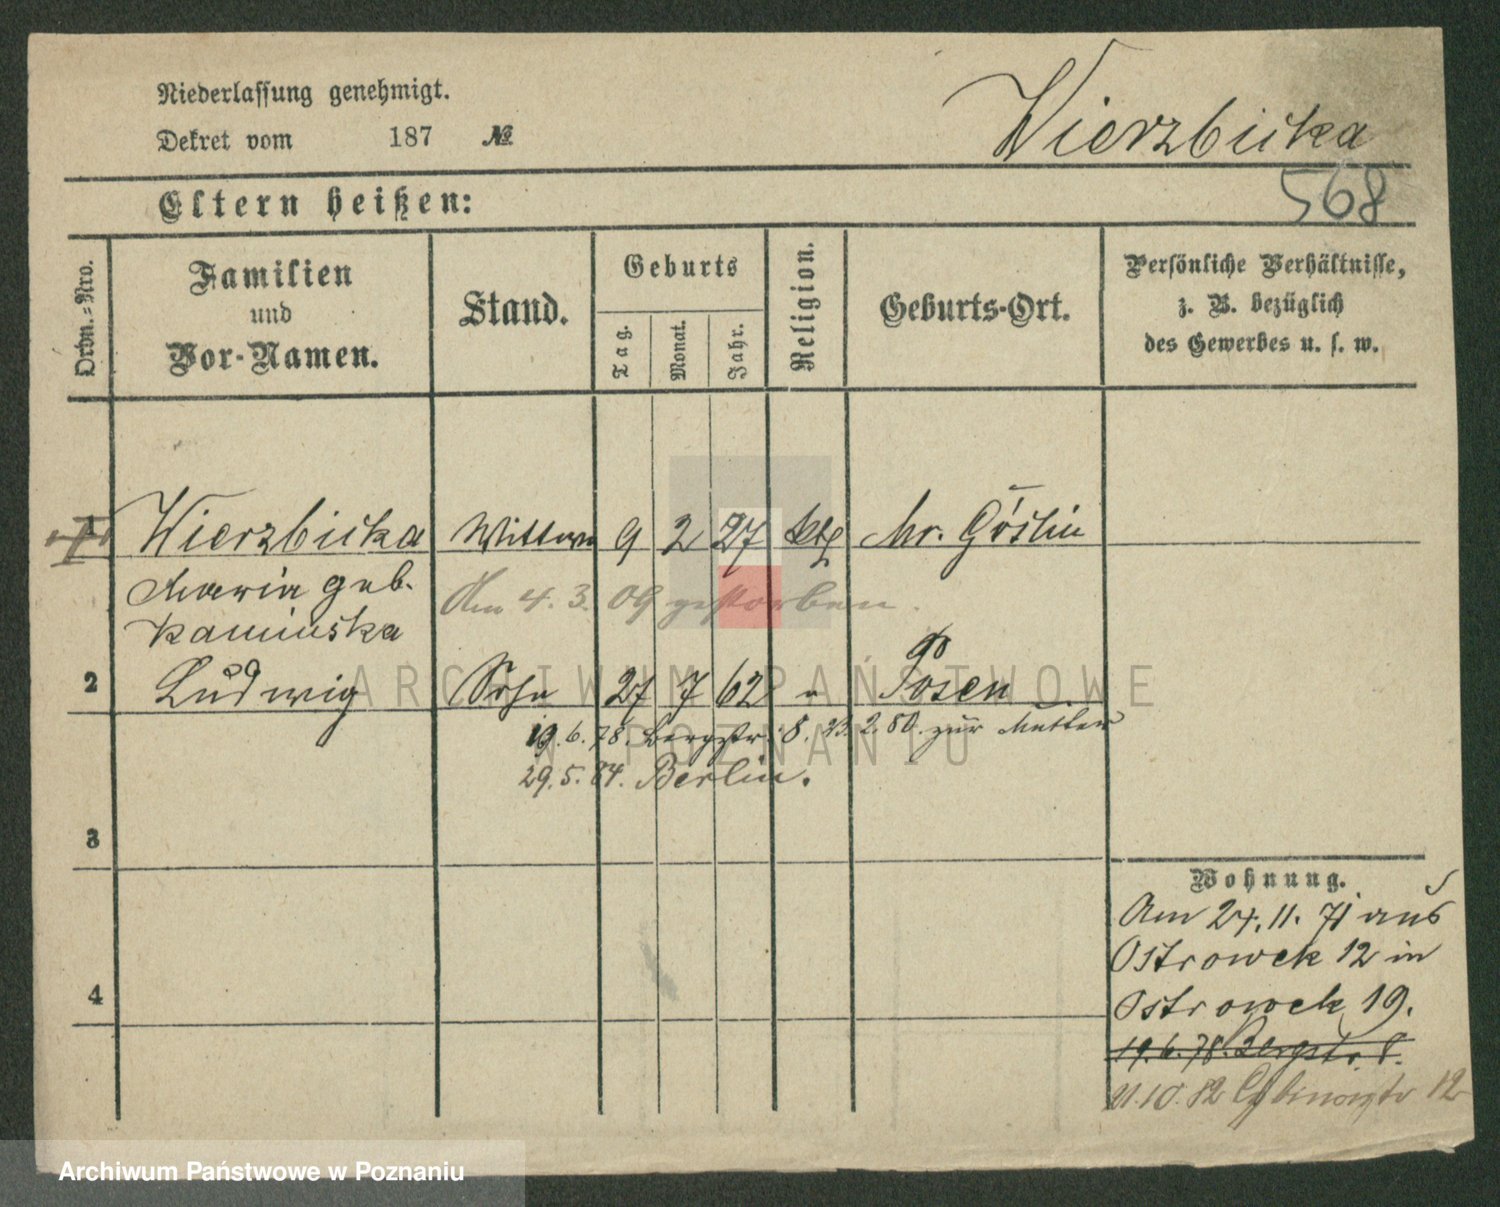 Niederlassung genehmigt.
Dekret vom 187 №
Wierzbicka
568
Eltern heißen:
Ordn.-Nro.
Familien
und
Vor-Namen.
Stand.
Geburts
Tag.
Monat.
Jahr.
Religion.
Geburts-Ort.
Persönliche Verhältnisse,
z. B. bezüglich
des Gewerbes u. s. w.
1 Wierzbicka Wittwe 9 2 27 ktg Mr. Goślin
Maria geb.
Am 4. 3. 09 gestorben.
Kaminska
2 Ludwig Sohn 27 7 62 " Posen
19. 6. 78. Bergstr. 8. 23. 2. 80. zur Mutter
29. 5. 84. Berlin.
3
4
Wohnung.
Am 24. 11. 71 aus
Ostrowek 12 in
Ostrowek 19.
19. 6. 78. Bergstr. 8.
21. 10. 82 12
ARCHIWUM PAŃSTWOWE
W POZNANIU
Archiwum Państwowe w Poznaniu